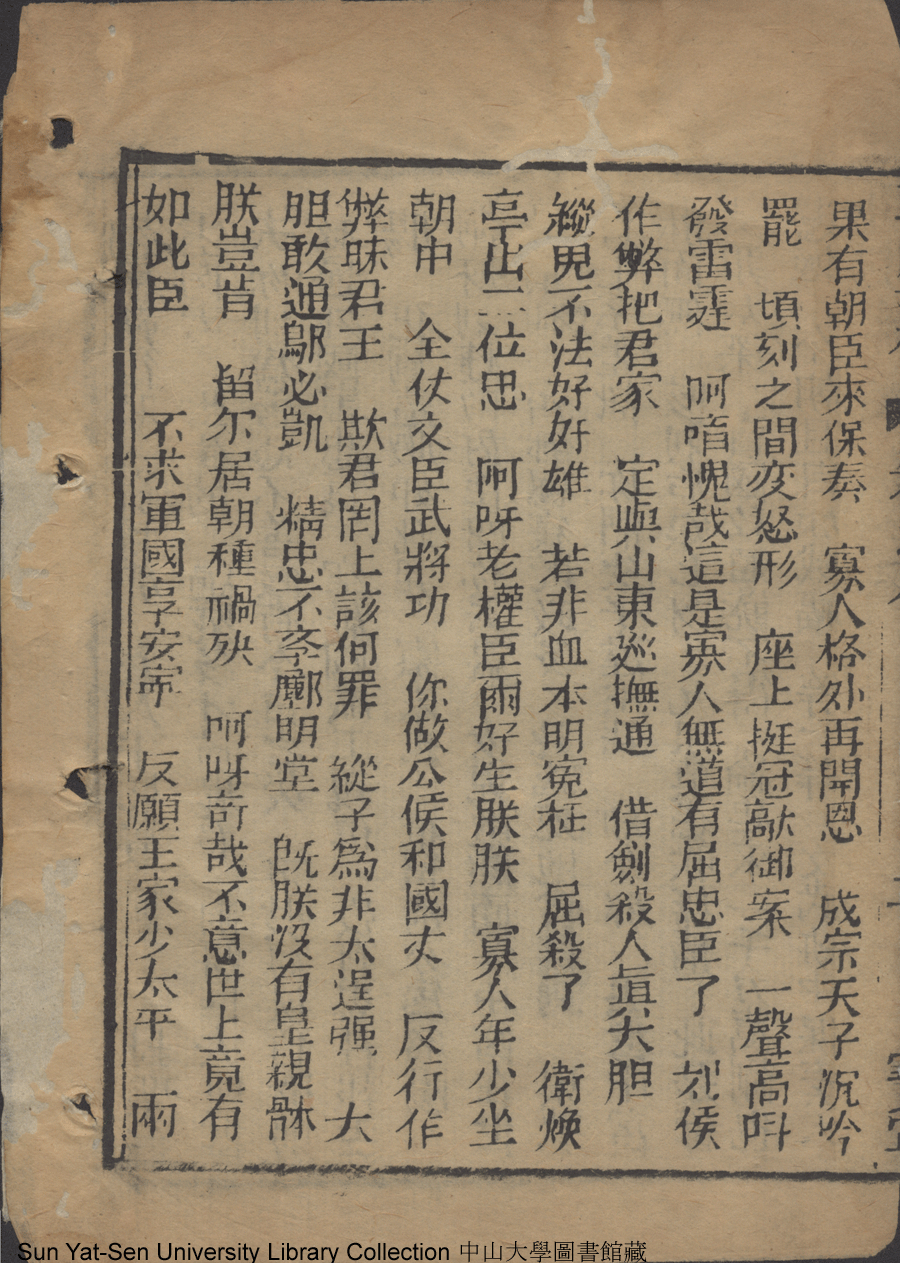 果有朝臣來保奏　寡人格外再開恩　成宗天子沉吟
罷　頃刻之間变怒形　座上挺冠敲御案　一聲高呌
發雷霆　呵唷愧哉這是寡人無道有屈忠臣了　刘侯
作弊把君家　定與山東廵撫通　借劍殺人眞大胆
縱児不法好奸雄　若非血本明寃枉　屈殺了　衛煥
亭山二位忠　阿呀老權臣爾好生朕朕　寡人年少坐
朝中　全仗文臣武將功　你做公侯和國丈　反行作
弊昧君王　欺君罔上該何罪　縱子爲非太逞强　大
胆敢通鄔必凱　精忠不幸鄺明堂　既朕没有皇親躰
朕豈肯　留尔居朝種禍殃　呵呀奇哉不意世上竟有
如此臣　　不求軍國享安寧　反願王家少太平　兩
Sun Yat-Sen University Library Collection 中山大學圖書館藏